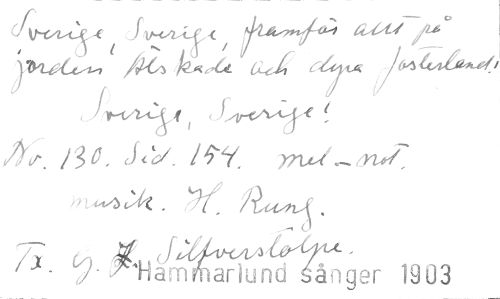 Sverige, Sverige, framför allt på
jorden älskade och dyra fosterland!
Sverige, Sverige!
No. 130. Sid. 154. mel-not.
musik. H. Rung.
Tx. G. Z. Silfverstolpe.
Hammarlund sånger 1903